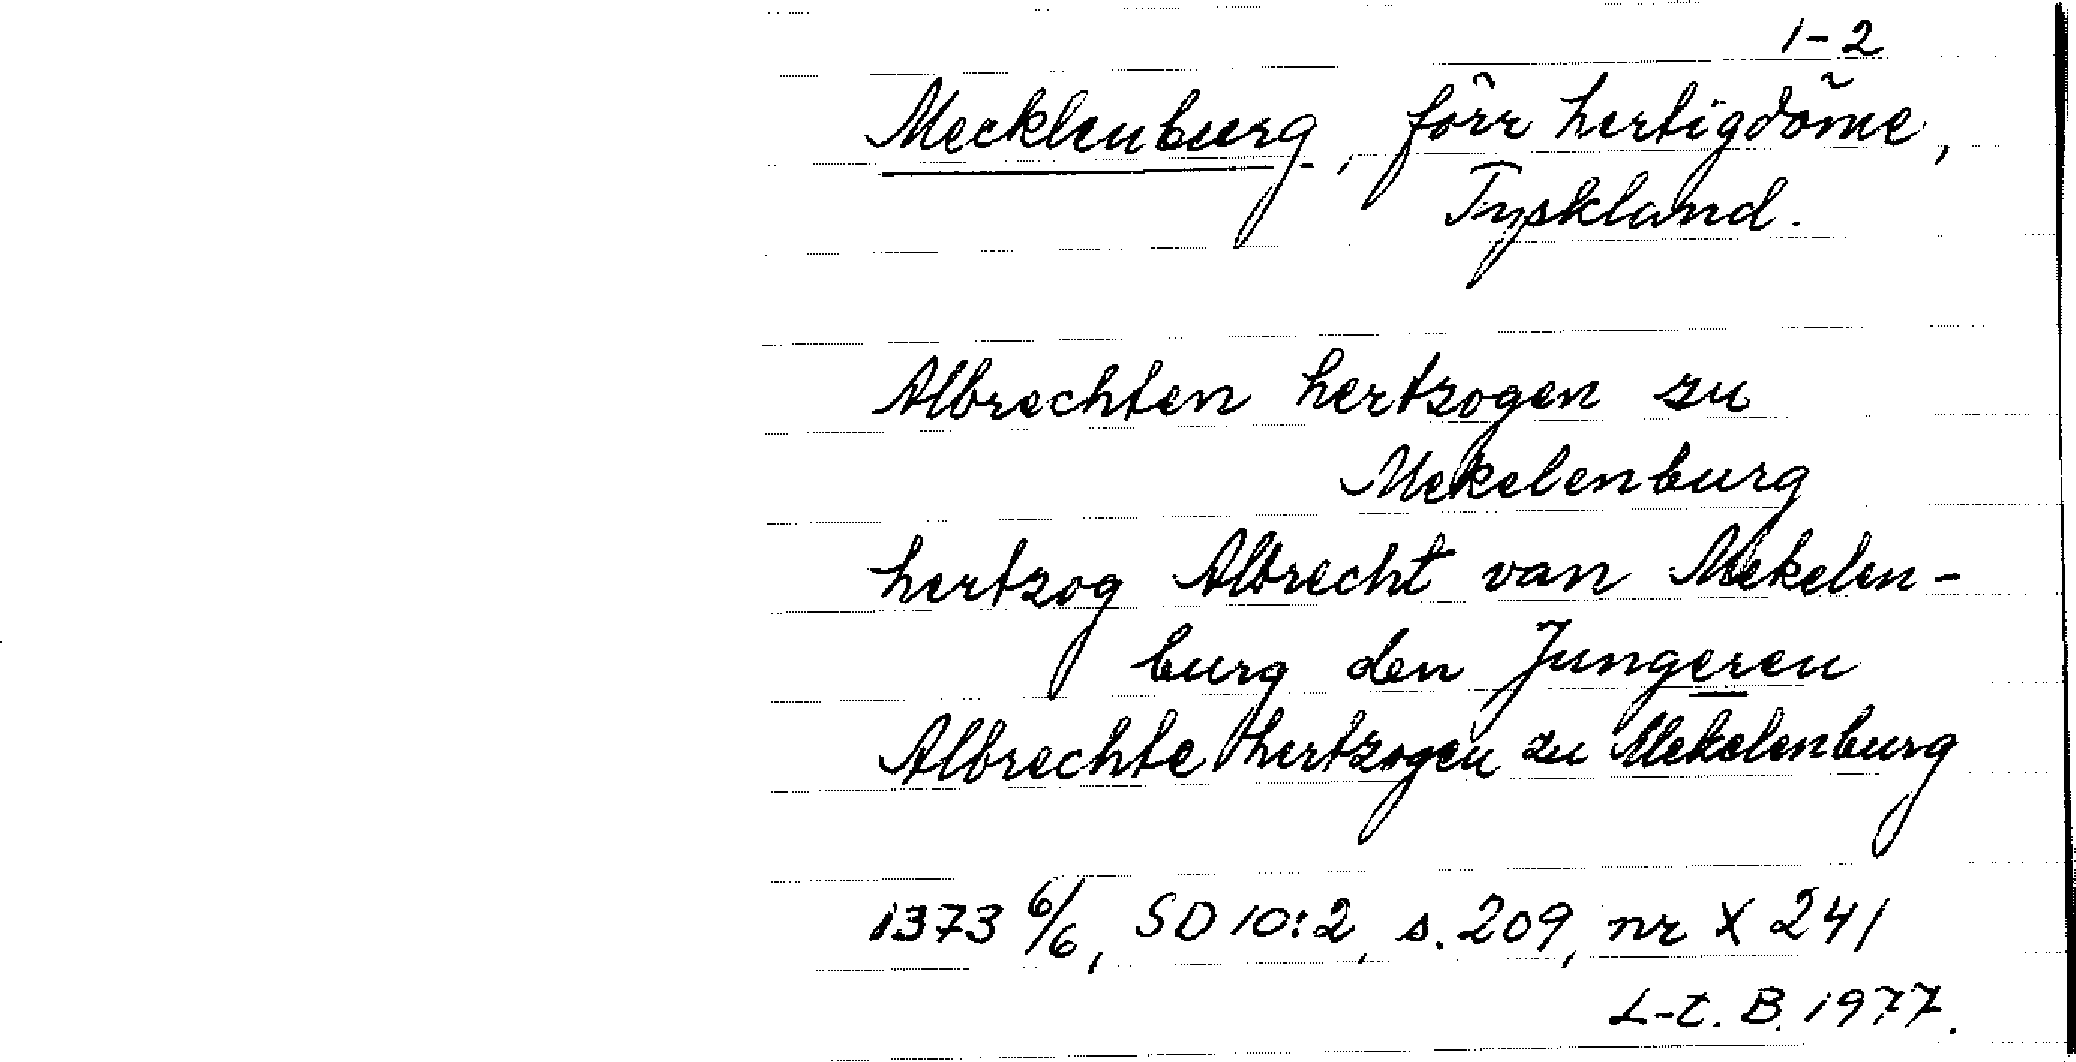 1-2
Mecklenburg, förr hertigdöme,
Tyskland.
Albrechten hertzogen zu
Mekelenburg
hertzog Albrecht van Mekelen-
burg den Jungeren
Albrechte hertzogen zu Mekelenburg
1373 6/6, SD 10:2, s. 209, nr X 241
L-t. B. 1977.